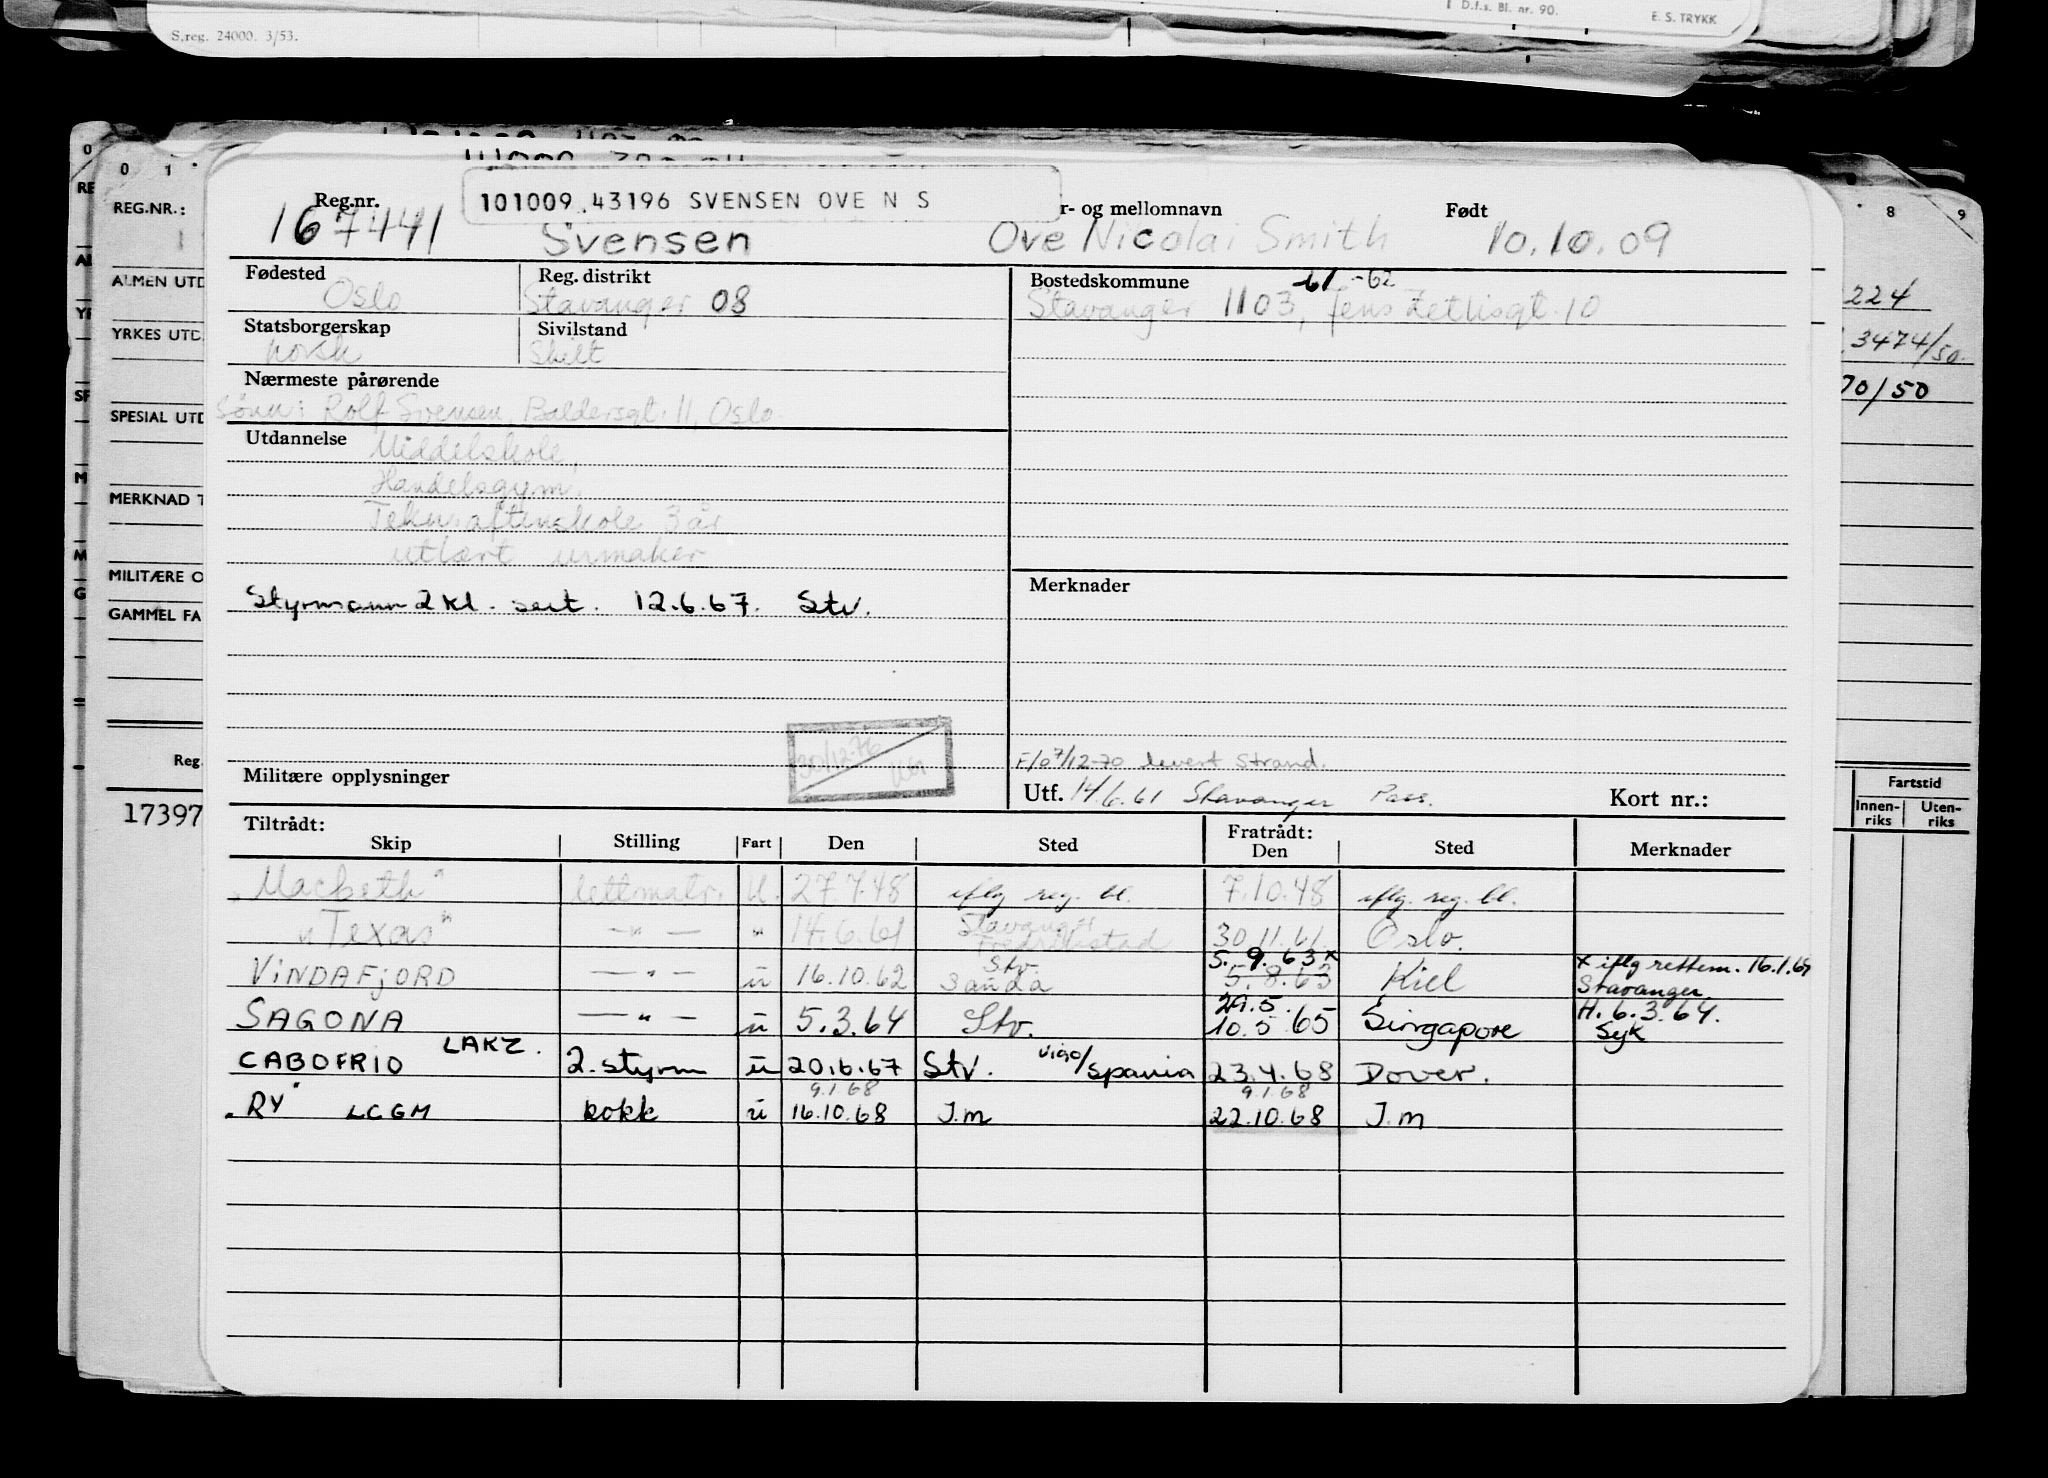 S.reg. 24000. 3/53.
D.f.s. Bl. nr. 90.
E. S. TRYKK
0 1
8 9
REG.NR.:
ALMEN UTD
YRKES UTD.
SPESIAL UTD
MERKNAD T
MILITÆRE O
GAMMEL FA
Reg.
17397
224
3474/50.
70/50
Fartstid
Innen-riks Uten-riks
Reg.nr. 101009 43196 SVENSEN OVE N S r- og mellomnavn Født
167441 Svensen Ove Nicolai Smith 10.10.09
Fødested Reg. distrikt Bostedskommune 61-62
Oslo Stavanger 08 Stavanger 1103, Jens Zetlisgt. 10
Statsborgerskap Sivilstand
norsk Skilt
Nærmeste pårørende
Sønn: Rolf Svensen Baldersgt. 11, Oslo.
Utdannelse Middelskole,
Handelsgym.
Tekn. aftenskole 3 år
utlært urmaker
Styrmann 2 kl. sert. 12.6.67. Stv.
Merknader
30/12-76
F/o 7/12-70 levert Strand.
Militære opplysninger
Utf. 14/6.61 Stavanger Pass. Kort nr.:
Tiltrådt: Fratrådt:
Skip Stilling Fart Den Sted Den Sted Merknader
"Macbeth" lettmatr. U. 27.7.48 iflg reg. bl. 7.10.48 iflg. reg. bl.
"Texas" —"— " 14.6.61 Stavanger Fredrikstad 30.11.61. Oslo.
VINDAFJORD —"— u 16.10.62 Stv. Sanda 5.9.63x 5.8.63 Kiel x iflg rettem. 16.1.64 Stavanger
SAGONA —"— u 5.3.64 Stv. 29.5. 10.5.65 Singapore H. 6.3.64. Syk
CABOFRIO LAKZ. 2. styrm u 20.6.67 Stv. Vigo/Spania 23.4.68 Dover.
9.1.68 9.1.68
"RY" LCGM kokk u 16.10.68 J.m 22.10.68 J.m